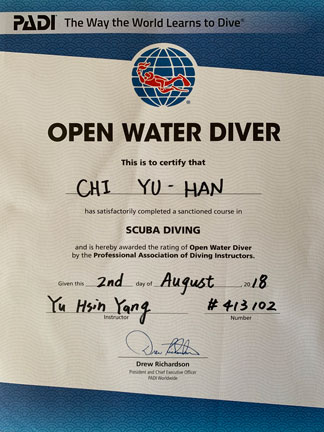 PADI® The Way the World Learns to Dive®
OPEN WATER DIVER
This is to certify that
CHI YU-HAN
has satisfactorily completed a sanctioned course in
SCUBA DIVING
and is hereby awarded the rating of Open Water Diver
by the Professional Association of Diving Instructors.
Given this 2nd day of August, 2018
Yu Hsin Yang #413102
Instructor Number
Drew Richardson
Drew Richardson
President and Chief Executive Officer
PADI Worldwide